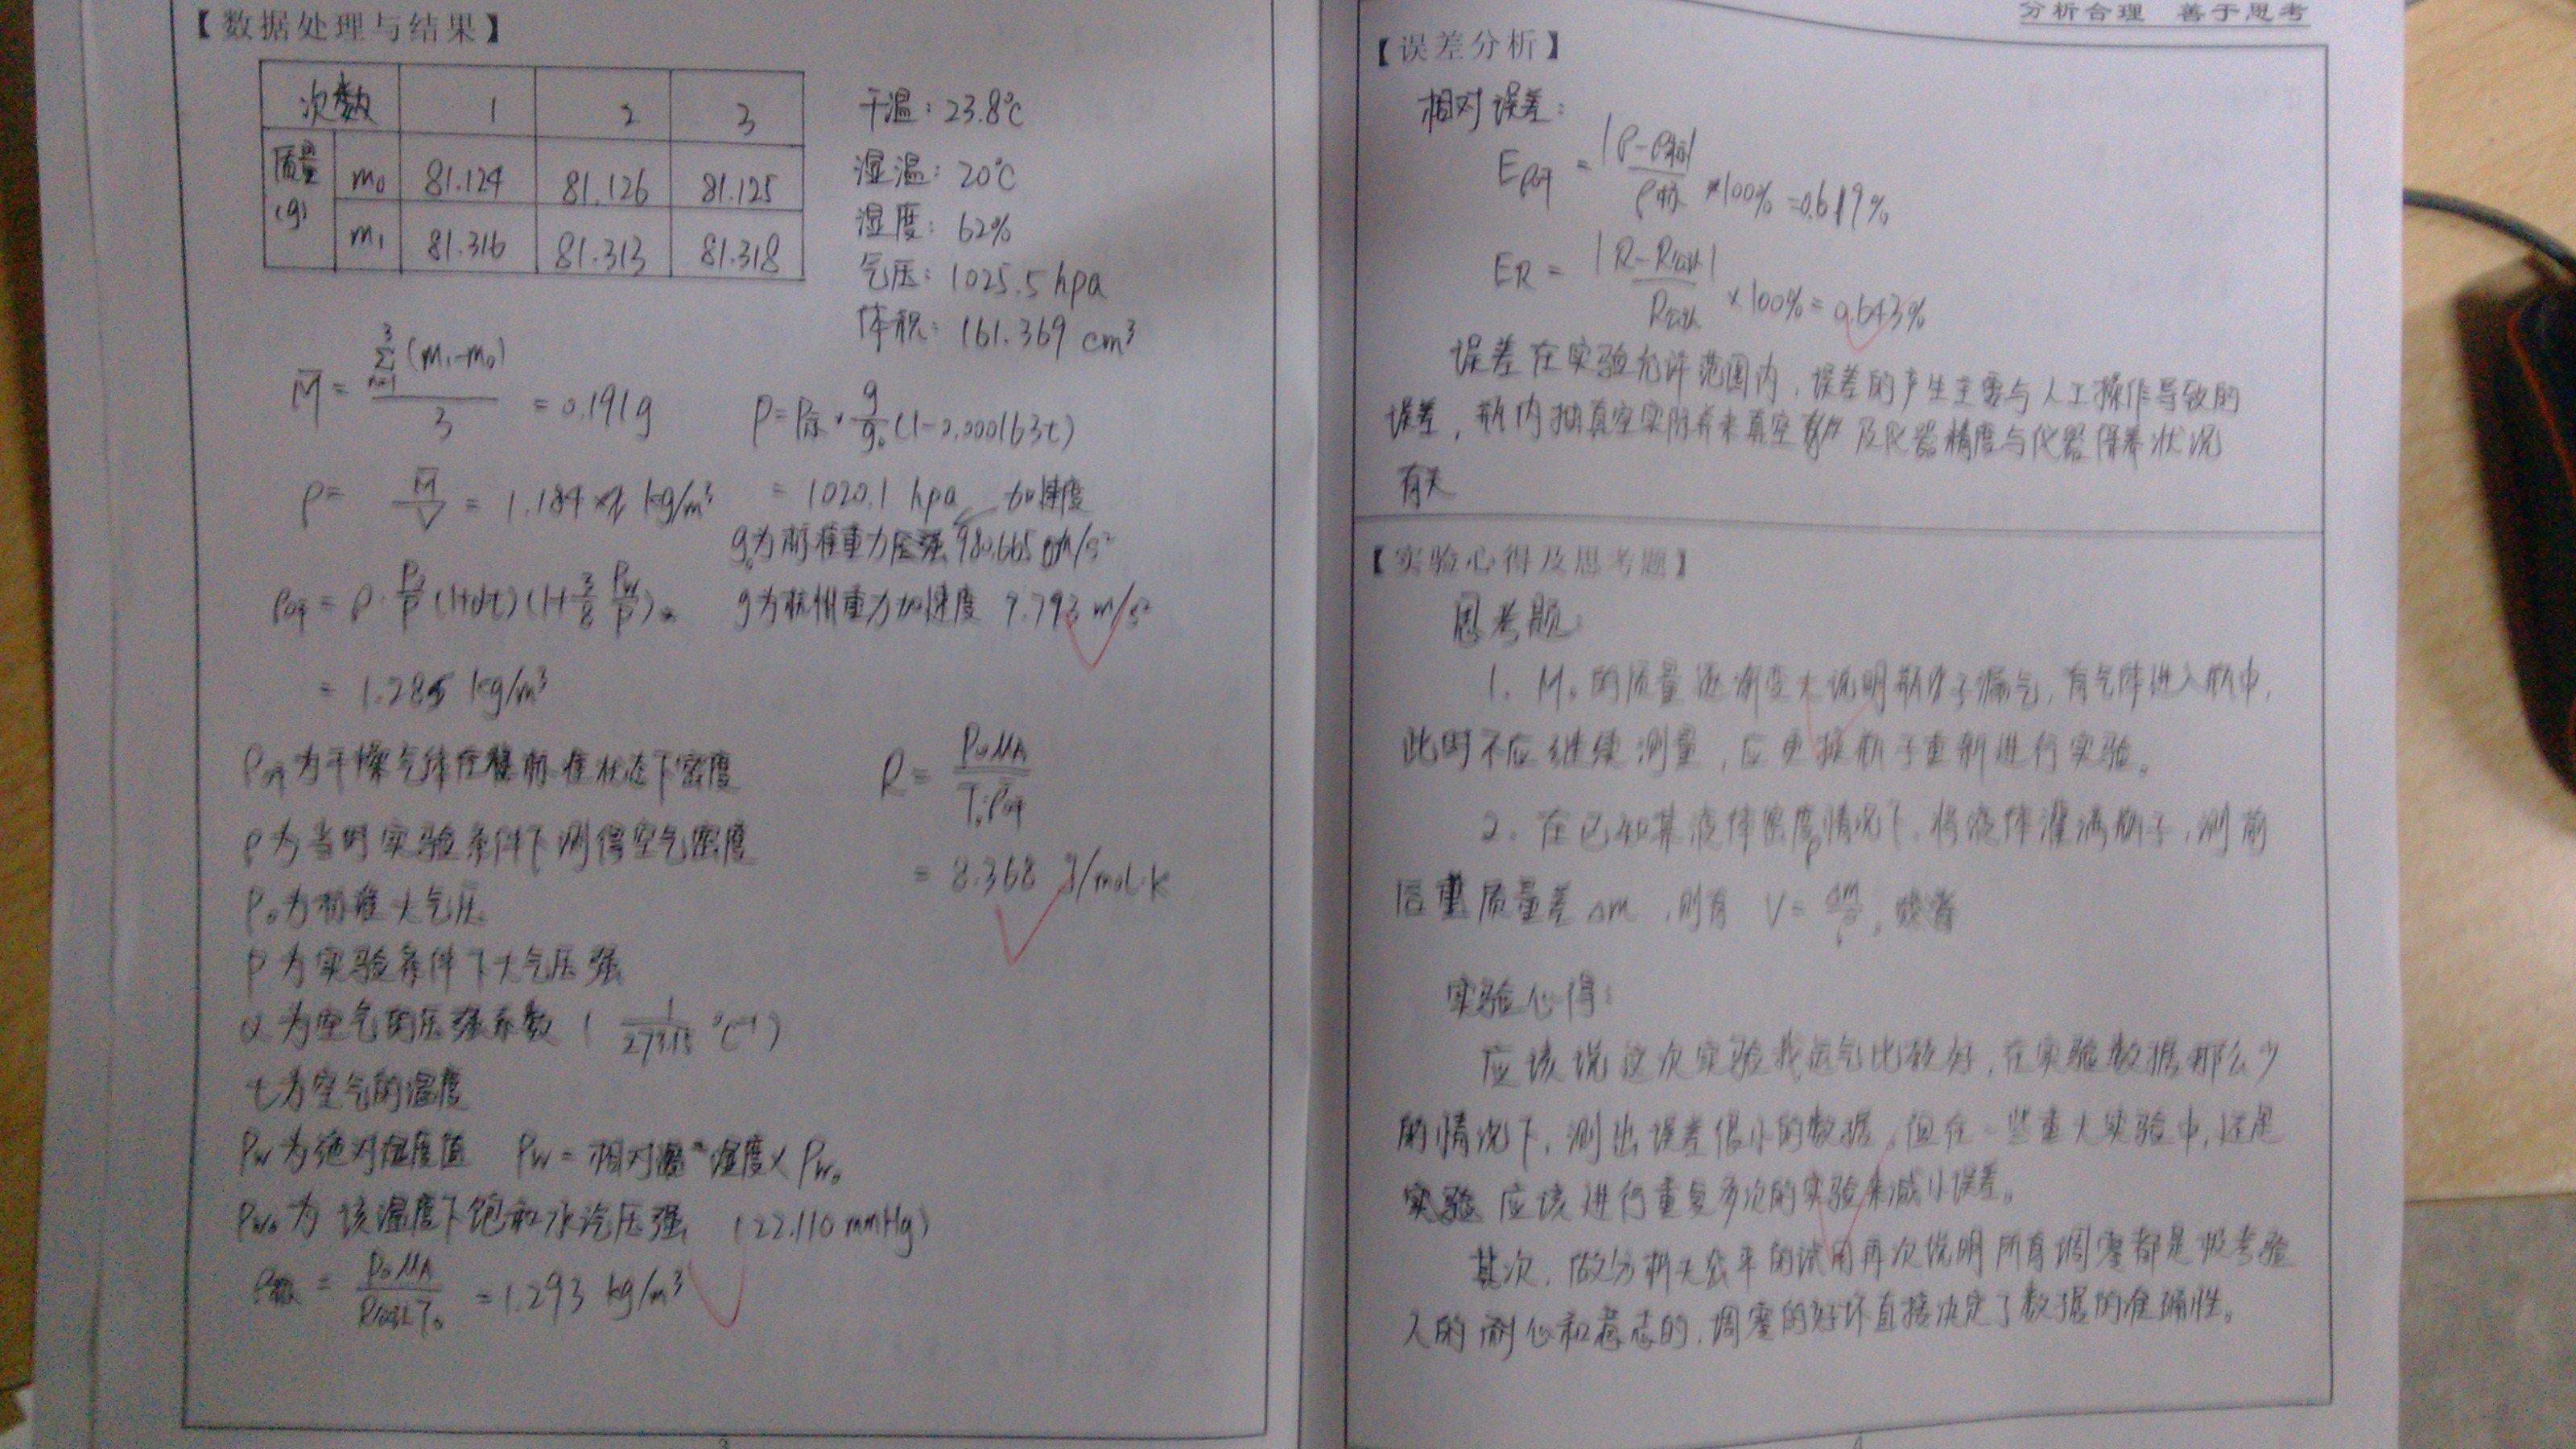 【数据处理与结果】
次数 1 2 3
质量(g) m₀ 81.124 81.126 81.125
m₁ 81.316 81.313 81.318
干温：23.8℃
湿温：20℃
湿度：62%
气压：1025.5 hpa
体积：161.369 cm³
M̄ = Σ(m₁-m₀) / 3 = 0.191g
P = P示 × g/g₀ (1-0.000163t)
= 1020.1 hpa
ρ = M̄/V = 1.184 kg/m³
g₀为标准重力加速度 980.665 cm/s²
g为杭州重力加速度 9.793 m/s²
ρ标 = ρ · P₀/P (1+αt)(1+3/8 Pw/P)
= 1.285 kg/m³
为干燥气体在标准状态下密度
ρ为当时实验条件下测得空气密度
P₀为标准大气压
P为实验条件下大气压强
α为空气的压强系数 ( 1/273.15 ℃⁻¹)
t为空气的温度
Pw为绝对湿度值 Pw = 相对湿度 × Pw₀
Pw₀为该温度下饱和水汽压强 (22.110 mmHg)
= P₀μA / T₀ = 1.293 kg/m³
R = P₀μA / T₀ρ标
= 8.368 J/mol·K
分析合理 善于思考
【误差分析】
相对误差：
×100% = 0.619%
ER = |R-R | / R ×100% = 0.643%
误差在实验允许范围内，误差的产生主要与人工操作导致的
误差，瓶内抽真空实际并未真空 及仪器精度与仪器保养状况
有关
【实验心得及思考题】
思考题：
1. M₀的质量逐渐变大说明瓶子漏气，有气体进入瓶中，
此时不应继续测量，应更换瓶子重新进行实验。
2. 在已知某液体密度ρ情况下，将液体灌满瓶子，测前
后质量差 Δm，则有 V = Δm/ρ。
实验心得：
应该说这次实验我运气比较好，在实验数据那么少
的情况下，测出误差很小的数据，但在一些重大实验中，还是
应该进行重复多次的实验来减小误差。
其次，分析天平的试用再次说明所有调零都是很考验
人的耐心和意志的，调零的好坏直接决定了数据的准确性。